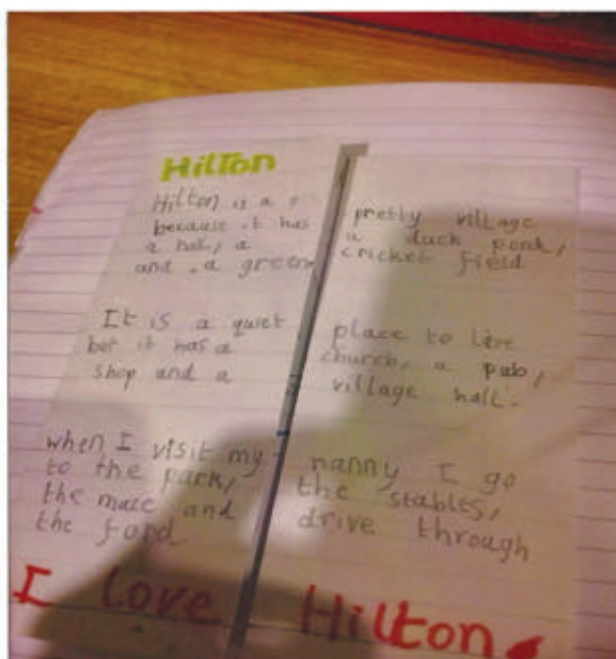 HilTon
Hilton is a pretty village
because it has a duck pond,
a hall, a cricket field
and a green
It is a quiet place to live
but it has a church, a pub,
shop and a village hall.
when I visit my nanny I go
to the park, the stables,
the maze and drive through
the ford
I love Hilton.